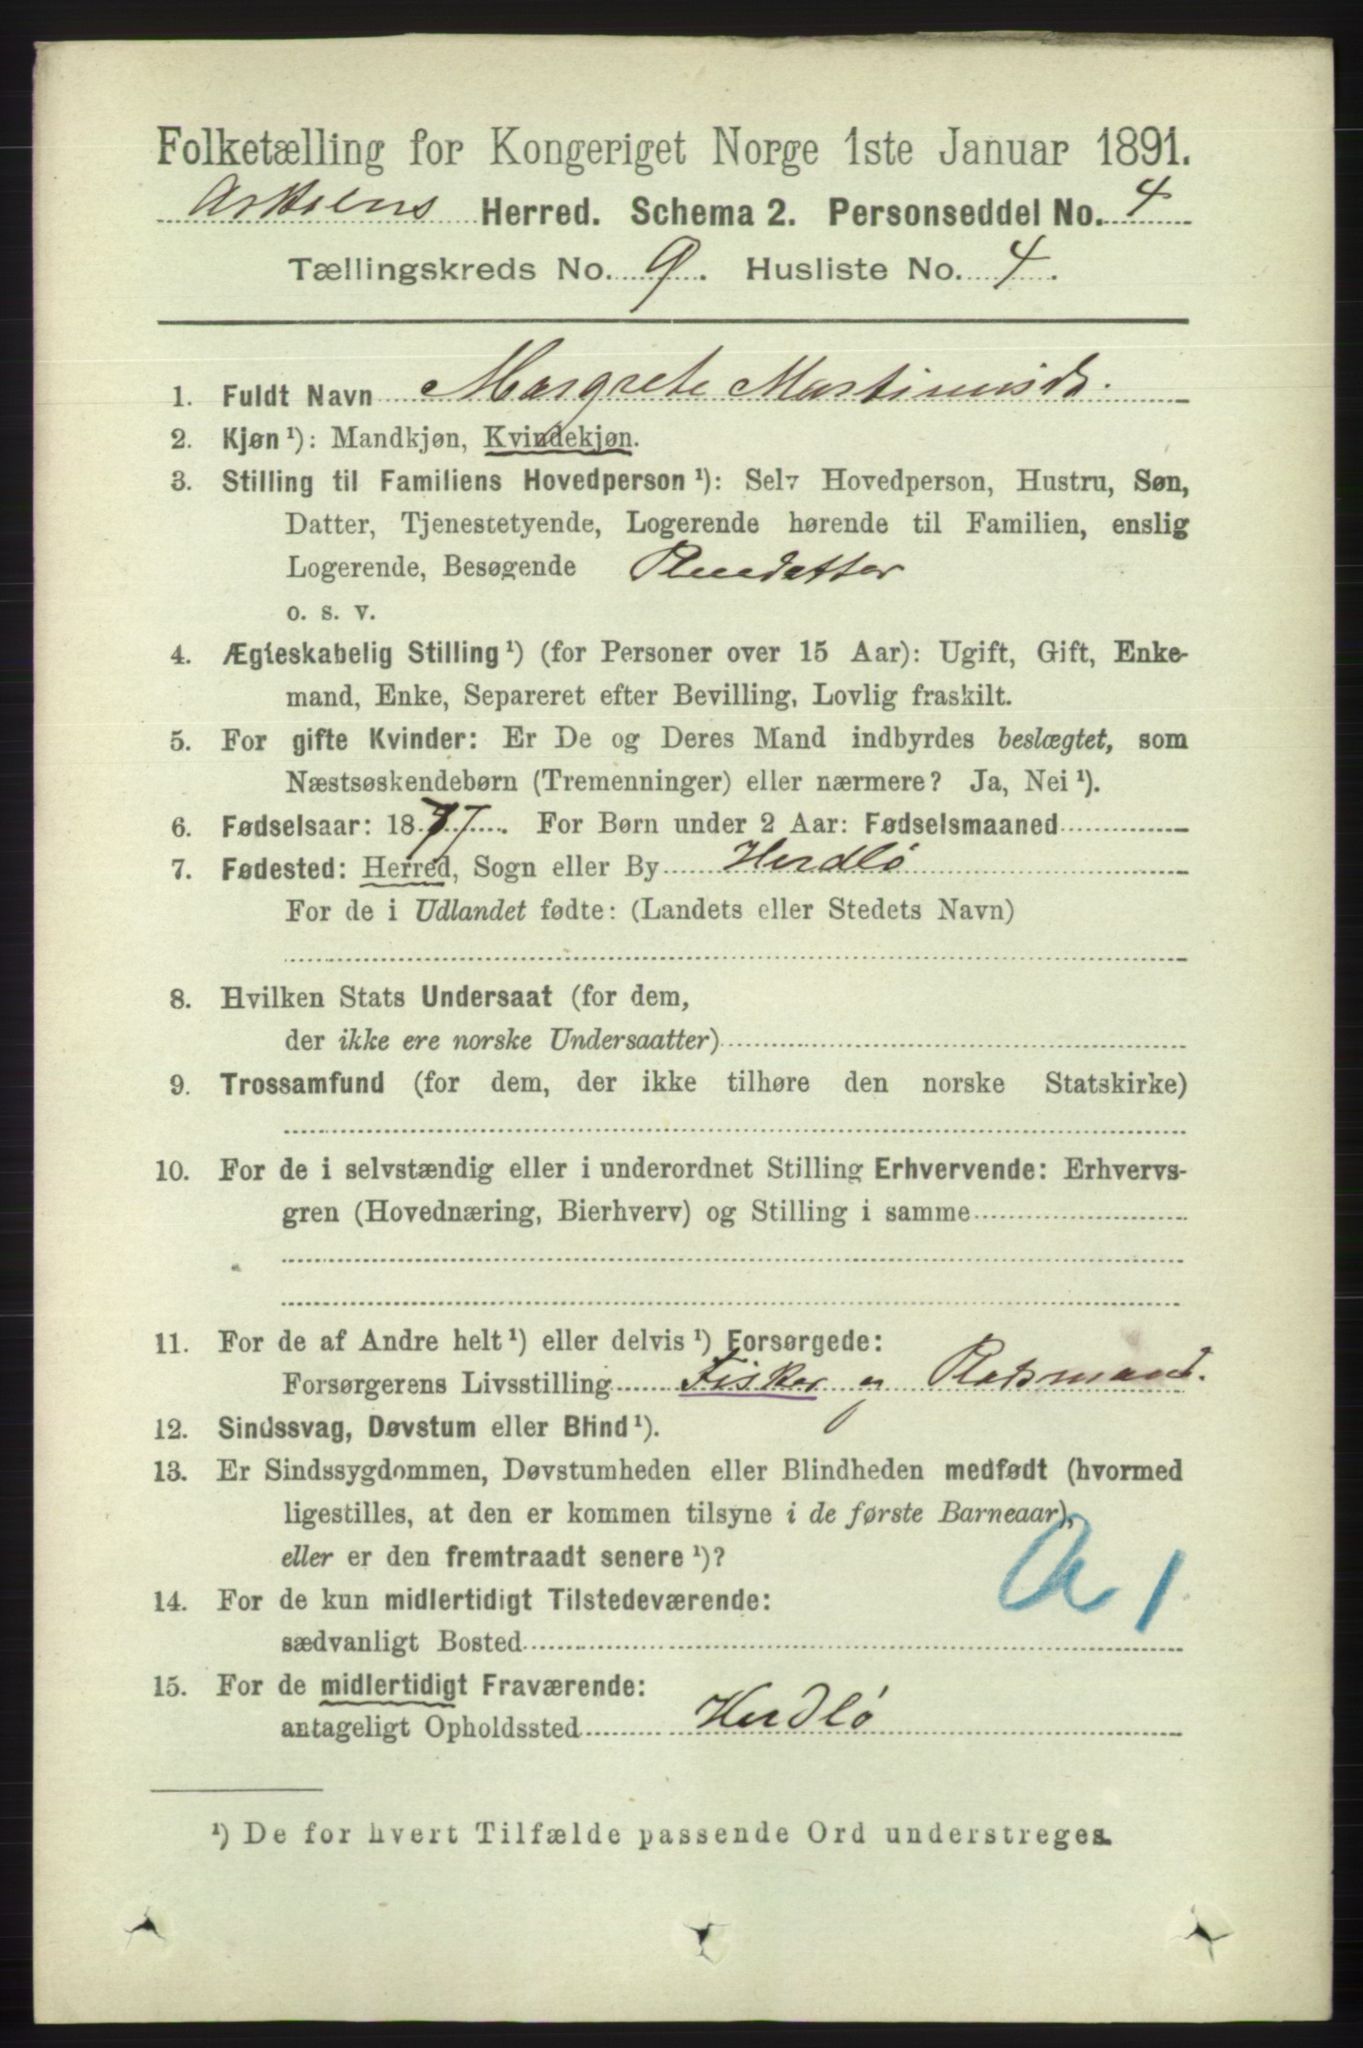 Folketælling for Kongeriget Norge 1ste Januar 1891.
Askøens Herred. Schema 2. Personseddel No. 4
Tællingskreds No. 9. Husliste No. 4.
1. Fuldt Navn Margrete Martinusdt.
2. Kjøn ¹): Mandkjøn, Kvindekjøn.
3. Stilling til Familiens Hovedperson ¹): Selv Hovedperson, Hustru, Søn,
Datter, Tjenestetyende, Logerende hørende til Familien, enslig
Logerende, Besøgende Pleiedatter
o. s. v.
4. Ægteskabelig Stilling ¹) (for Personer over 15 Aar): Ugift, Gift, Enke-
mand, Enke, Separeret efter Bevilling, Lovlig fraskilt.
5. For gifte Kvinder: Er De og Deres Mand indbyrdes beslægtet, som
Næstsøskendebørn (Tremenninger) eller nærmere? Ja, Nei ¹).
6. Fødselsaar: 1877. For Børn under 2 Aar: Fødselsmaaned
7. Fødested: Herred, Sogn eller By Herdlø
For de i Udlandet fødte: (Landets eller Stedets Navn)
8. Hvilken Stats Undersaat (for dem,
der ikke ere norske Undersaatter)
9. Trossamfund (for dem, der ikke tilhøre den norske Statskirke)
10. For de i selvstændig eller i underordnet Stilling Erhvervende: Erhvervs-
gren (Hovednæring, Bierhverv) og Stilling i samme
11. For de af Andre helt ¹) eller delvis ¹) Forsørgede:
Forsørgerens Livsstilling Fisker og Pladsmand.
12. Sindssvag, Døvstum eller Blind ¹).
13. Er Sindssygdommen, Døvstumheden eller Blindheden medfødt (hvormed
ligestilles, at den er kommen tilsyne i de første Barneaar),
eller er den fremtraadt senere ¹)?
14. For de kun midlertidigt Tilstedeværende:
sædvanligt Bosted
15. For de midlertidigt Fraværende:
antageligt Opholdssted Herdlø
¹) De for hvert Tilfælde passende Ord understreges.